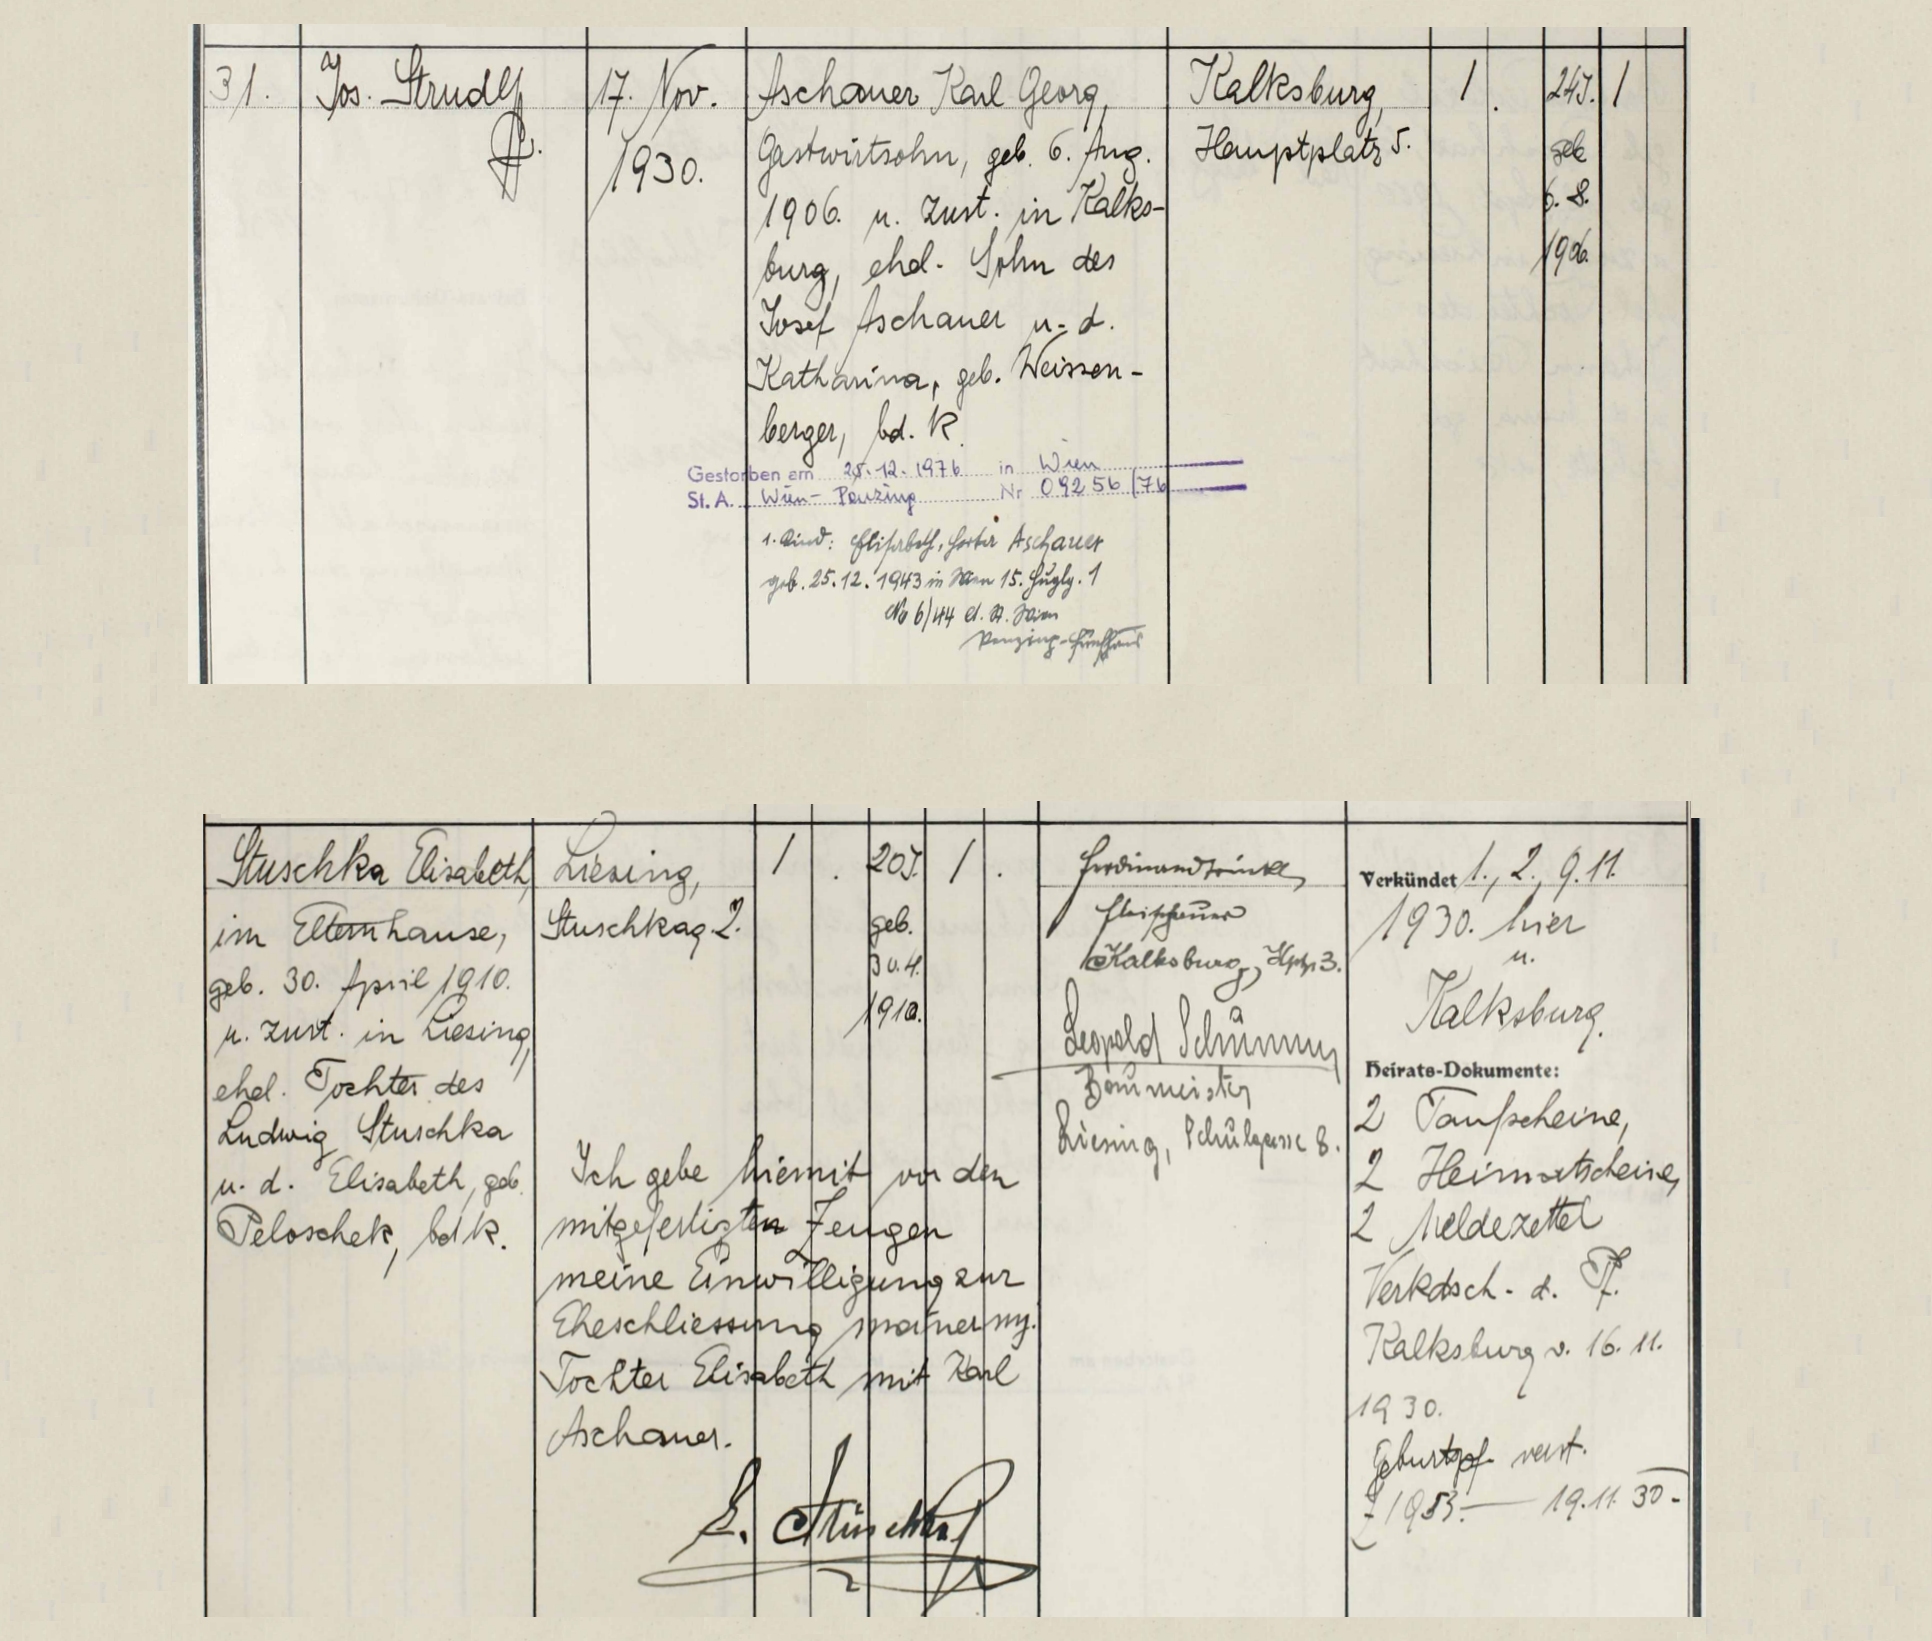 31.
Jos. Strudl
Pf.
17. Nov.
1930.
Aschauer Karl Georg,
Gastwirtsohn, geb. 6. Aug.
1906. u. zust. in Kalks-
burg, ehel. Sohn des
Josef Aschauer u. d.
Katharina, geb. Weissen-
berger, bd. k.
Kalksburg,
Hauptplatz 5.
1 .
24J.
geb
6. 8.
1906.
1
Gestorben am 25.12.1976 in Wien
St. A. Wien-Penzing Nr 09256/76
1. Kind: Elisabeth, Aschauer
geb. 25.12.1943 in Wien 15. 1
No 6/44 St. A. Wien
Penzing-Fünfhaus
Stuschka Elisabeth,
im Elternhause,
geb. 30. April 1910.
u. zust. in Liesing,
ehel. Tochter des
Ludwig Stuschka
u. d. Elisabeth, geb.
Peloschek, bd k.
Liesing,
Stuschkag 2.
1 .
20J.
geb.
30.4.
1910.
1 .
Ich gebe hiemit vor den
mitgefertigten Zeugen
meine Einwilligung zur
Eheschliessung meiner mj.
Tochter Elisabeth mit Karl
Aschauer.
Stuschka
Ferdinand Trinkl
Fleischhauer
Kalksburg, Hptpl 3.
Leopold
Baumeister
Liesing, Schulgasse 8.
Verkündet 1., 2., 9.11.
1930. hier
u.
Kalksburg.
Heirats-Dokumente:
2 Taufscheine,
2 Heimatscheine,
2 Meldezettel
Verkdsch. d. Pf.
Kalksburg v. 16. 11.
1930.
Geburtspf. verst.
Z 1953. — 19.11. 30.-